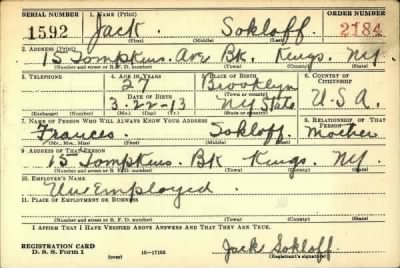 SERIAL NUMBER 1. NAME (Print) ORDER NUMBER
1592 Jack. Sokloff 2184
(First) (Middle) (Last)
2. ADDRESS (Print)
15 Tompkins. Ave Bk. Kings. NY
(Number and street or R. F. D. number) (Town) (County) (State)
3. TELEPHONE 4. AGE IN YEARS 5. PLACE OF BIRTH 6. COUNTRY OF CITIZENSHIP
27 Brooklyn
DATE OF BIRTH (Town or county)
3-22-13 NY State U.S.A.
(Mo.) (Day) (Yr.) (State or country)
7. NAME OF PERSON WHO WILL ALWAYS KNOW YOUR ADDRESS 8. RELATIONSHIP OF THAT PERSON
Frances. Sokloff Mother
(Mr., Mrs., Miss) (First) (Middle) (Last)
9. ADDRESS OF THAT PERSON
15 Tompkins. Bk Kings. NY
(Number and street or R. F. D. number) (Town) (County) (State)
10. EMPLOYER'S NAME
UnEmployed
11. PLACE OF EMPLOYMENT OR BUSINESS
(Number and street or R. F. D. number) (Town) (County) (State)
I AFFIRM THAT I HAVE VERIFIED ABOVE ANSWERS AND THAT THEY ARE TRUE.
REGISTRATION CARD
D. S. S. Form 1 (over) 16-17105
Jack Sokloff
(Registrant's signature)